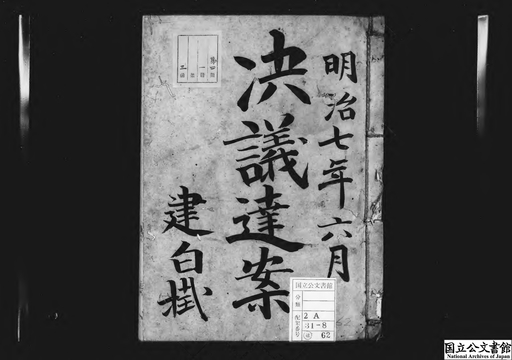 明治七年六月
決議達案
建白掛
国立公文書館
分類
配架番号
2 A
31-8
62
国立公文書館
National Archives of Japan